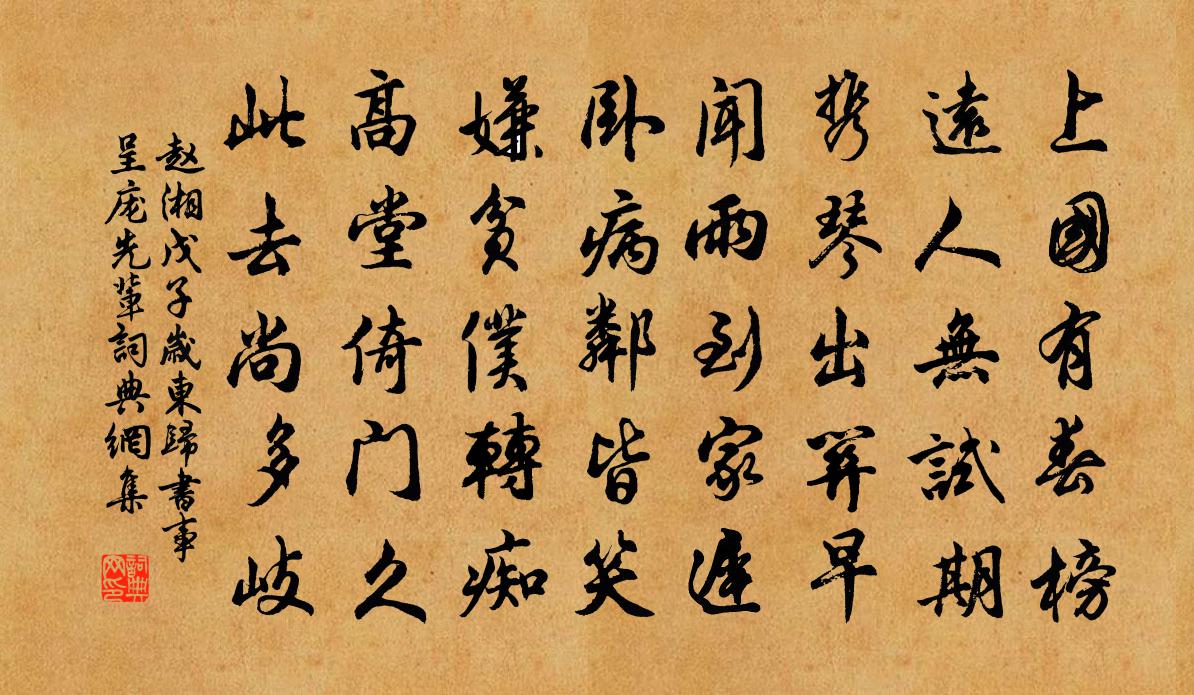 上國有春榜
遠人無試期
携琴出關早
聞雨到家遲
臥病鄰皆笑
嫌貧僕轉痴
高堂倚門久
此去尚多岐
赵湘戊子歲東歸書事
呈庞先輩詞典網集
詞典
网印